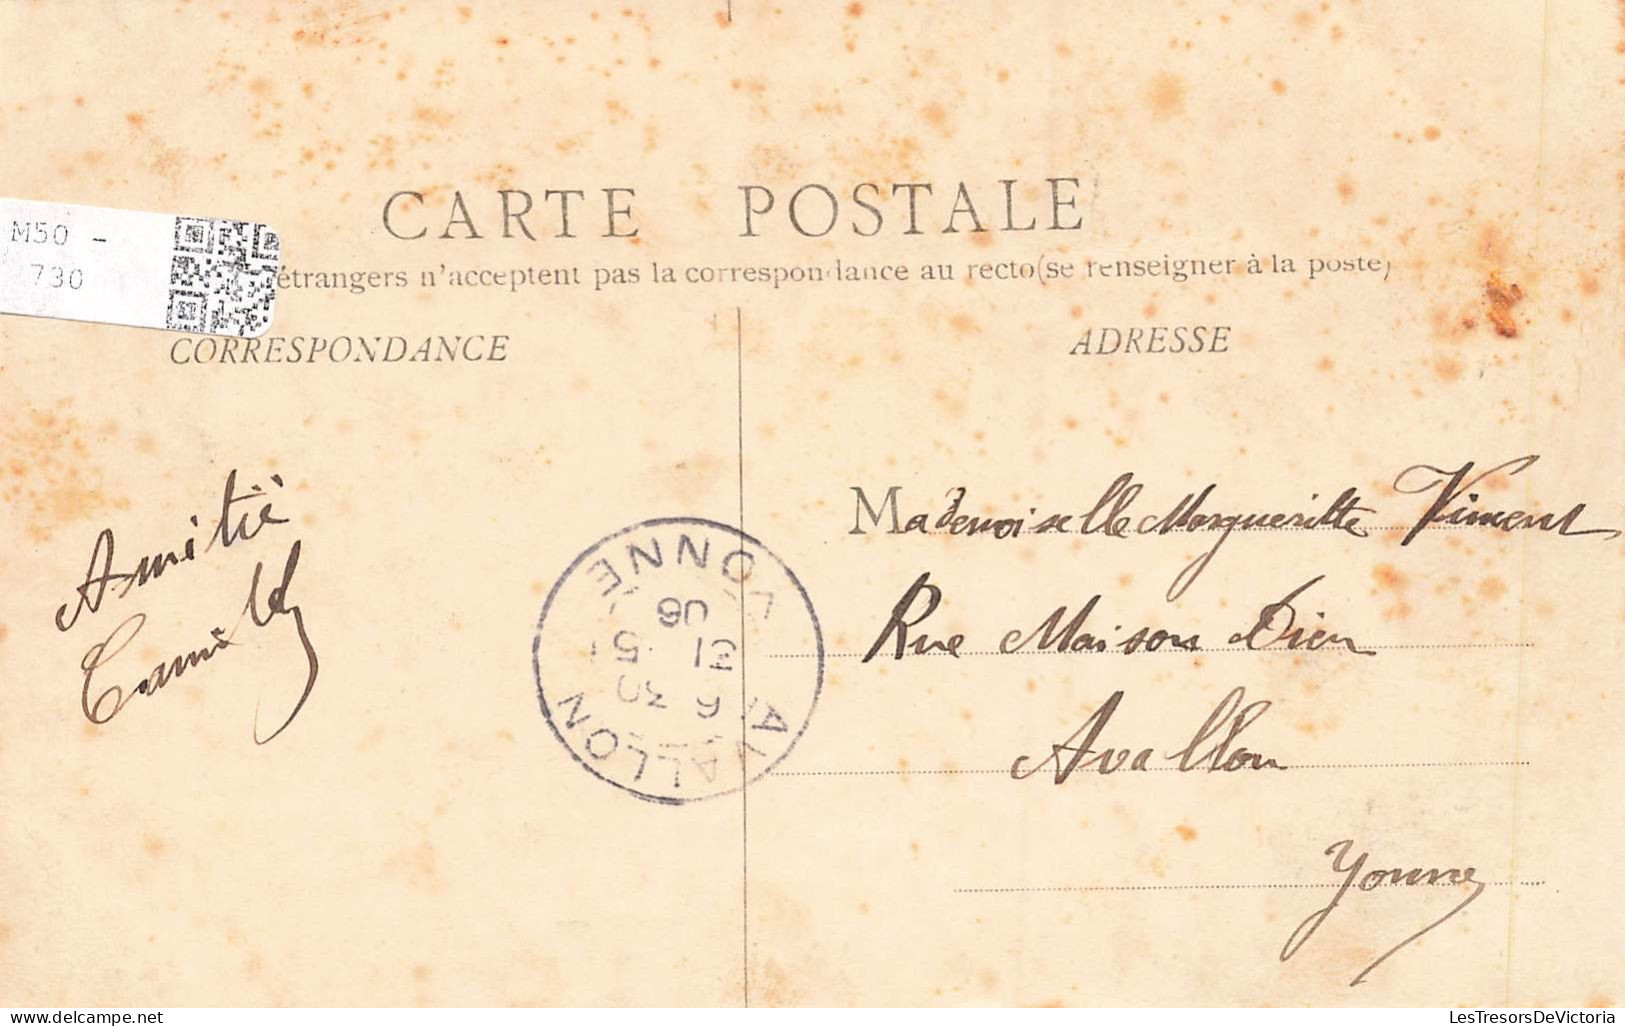 CARTE POSTALE
M50 -
730
étrangers n'acceptent pas la correspondance au recto (se renseigner à la poste)
CORRESPONDANCE
ADRESSE
Amitié
Camille
Mademoiselle Margueritte Viment
Rue Maison Dieu
Avallon
Yonne
AVALLON
6 30
31 5
06
YONNE
LesTresorsDeVictoria